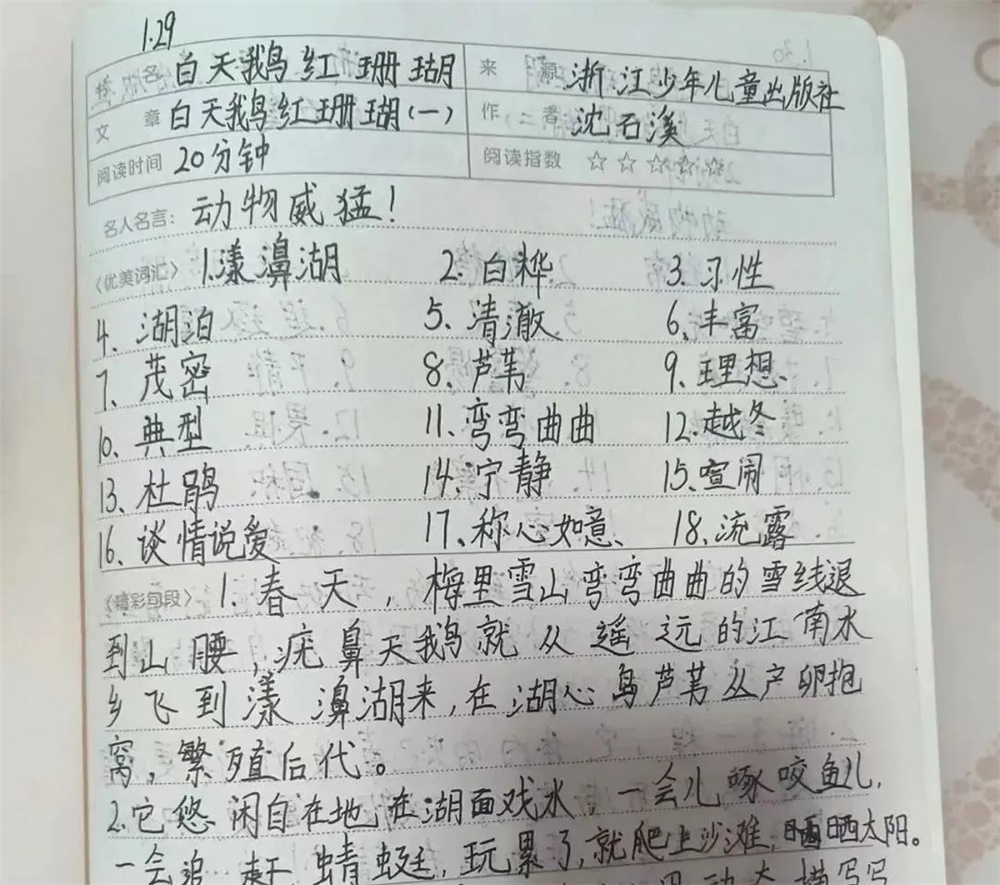 1.29
书名 白天鹅红珊瑚 来源 浙江少年儿童出版社
文章 白天鹅红珊瑚(一) 作者 沈石溪
阅读时间 20分钟 阅读指数 ☆☆☆☆☆
名人名言: 动物威猛!
〈优美词汇〉 1.漾濞湖 2.白桦 3.习性
4.湖泊 5.清澈 6.丰富
7.茂密 8.芦苇 9.理想
10.典型 11.弯弯曲曲 12.越冬
13.杜鹃 14.宁静 15.喧闹
16.谈情说爱 17.称心如意 18.流露
〈精彩句段〉 1.春天,梅里雪山弯弯曲曲的雪线退
到山腰,疣鼻天鹅就从遥远的江南水
乡飞到漾濞湖来,在湖心岛芦苇丛产卵抱
窝,繁殖后代。
2.它悠闲自在地在湖面戏水,一会儿啄咬鱼儿,
一会追赶蜻蜓,玩累了,就爬上沙滩,晒晒太阳。
动 描写